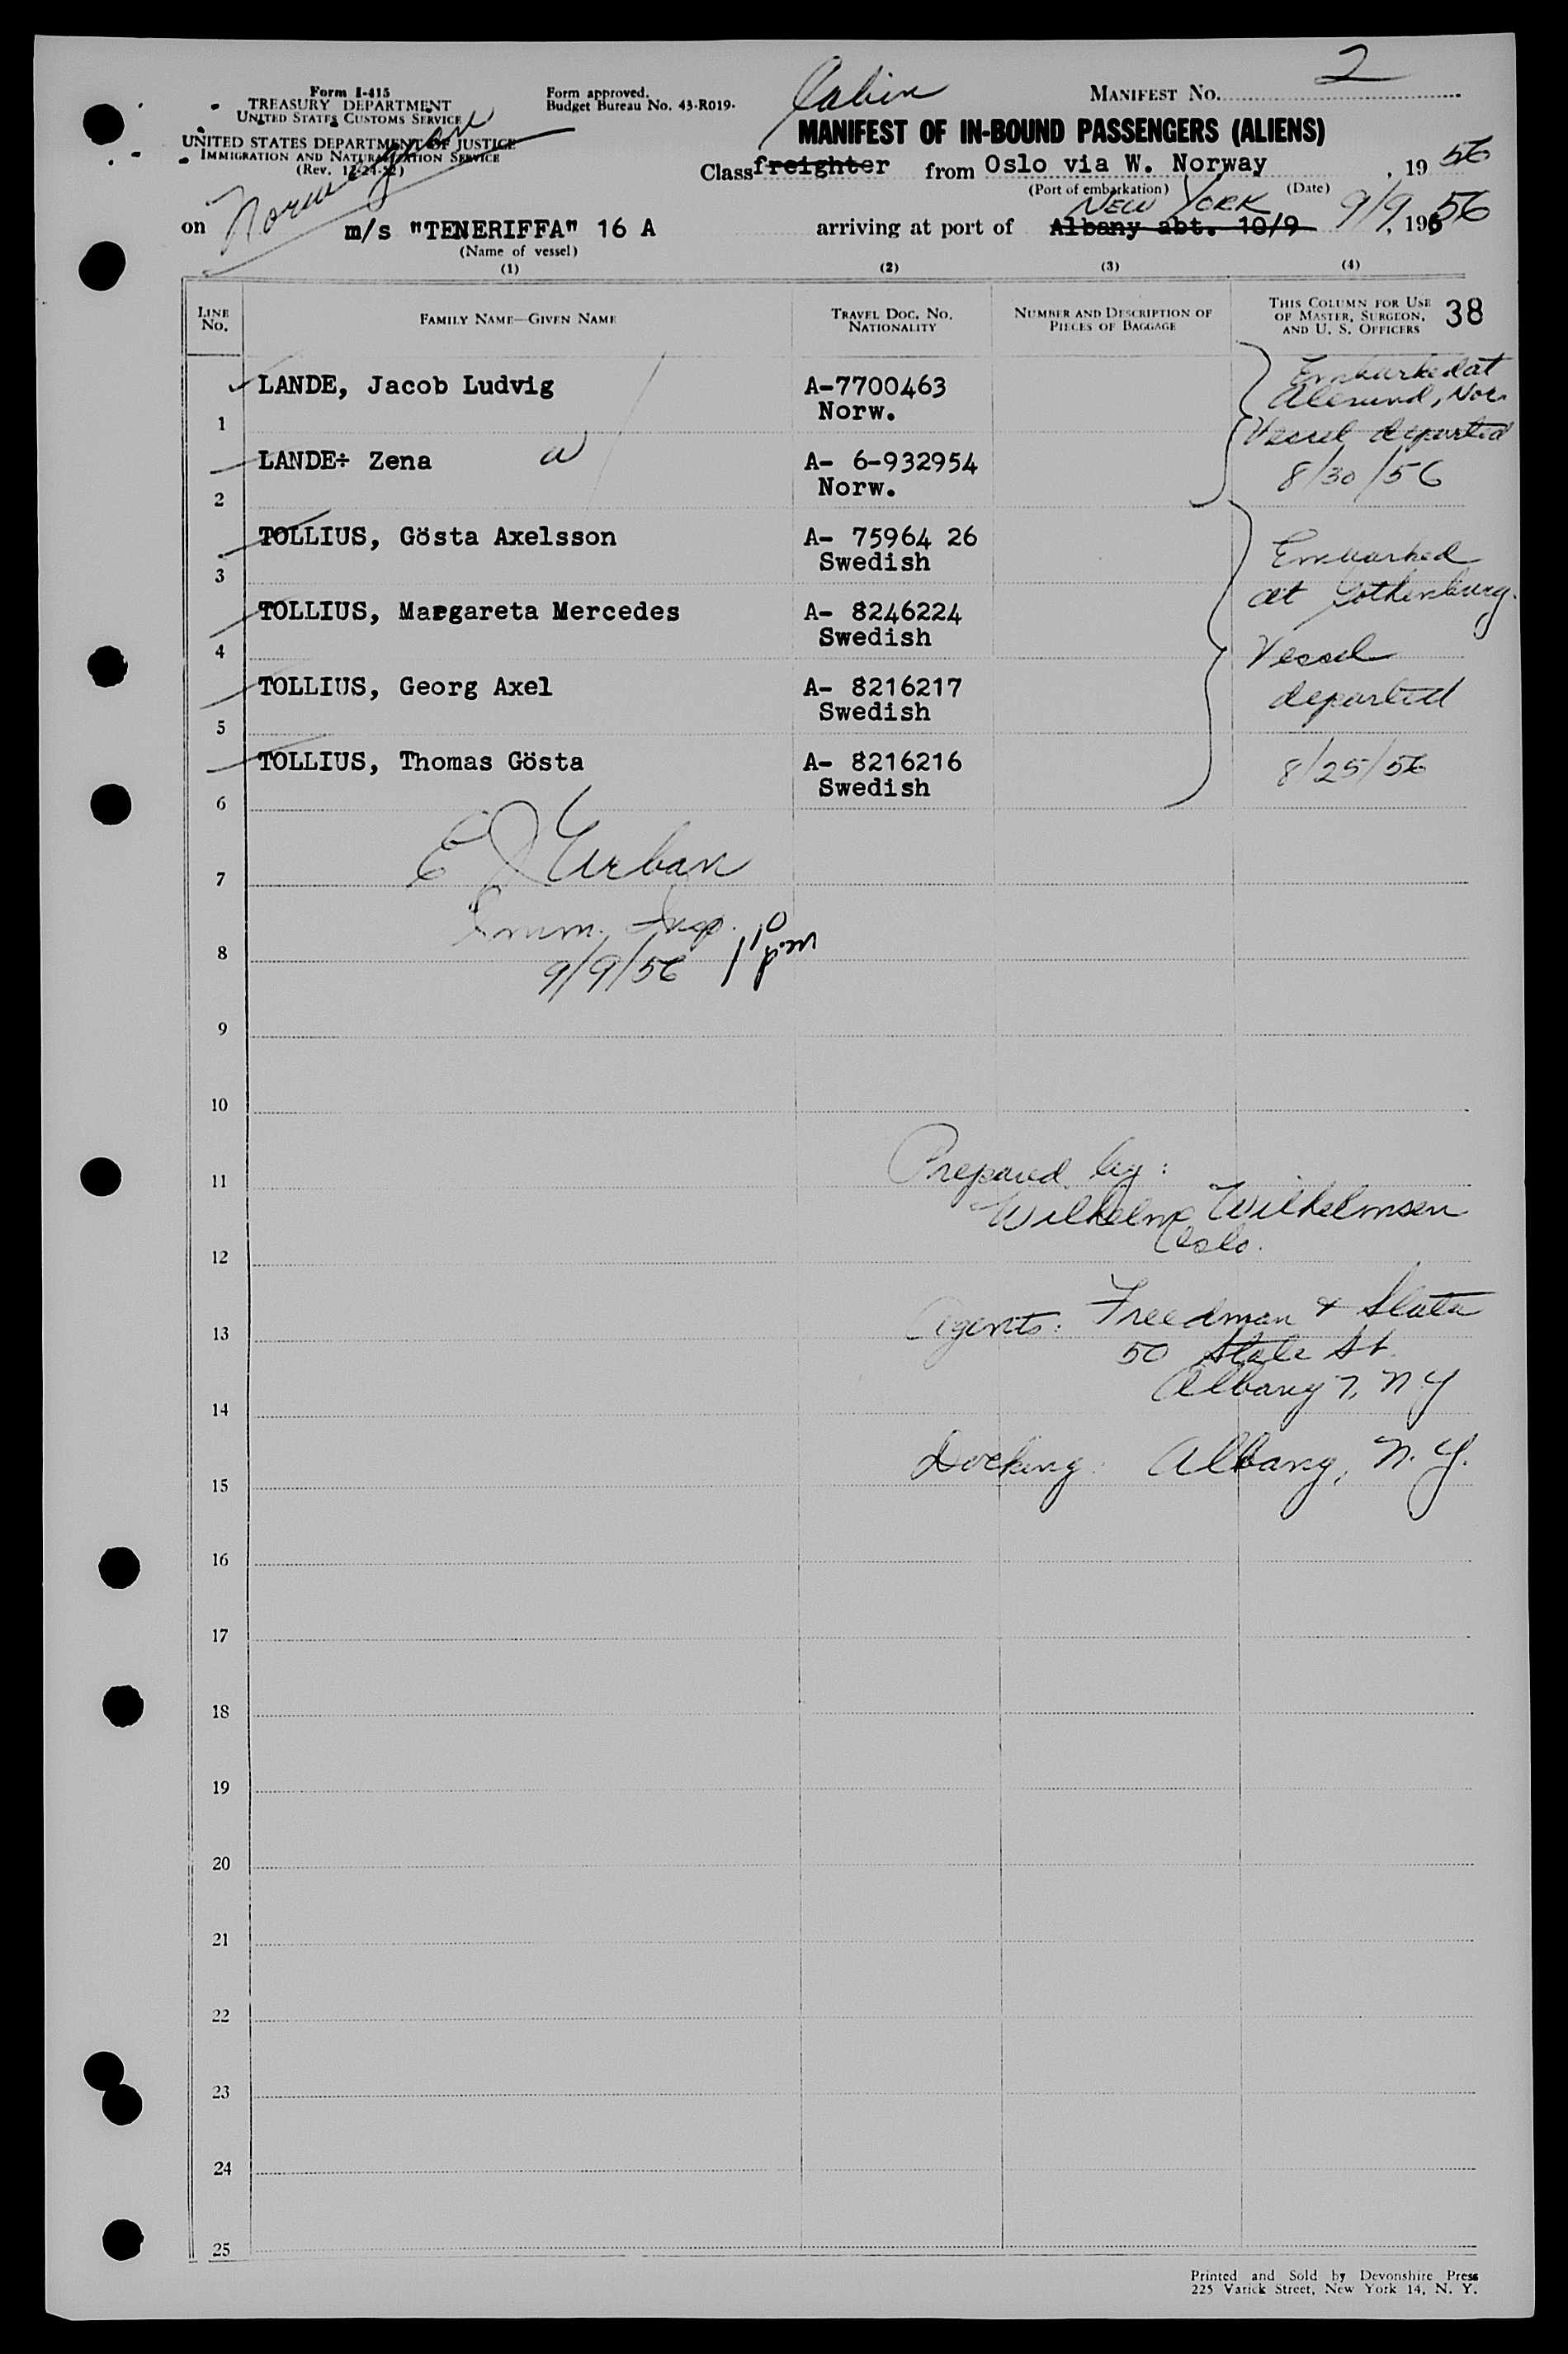 2
Form I-415
TREASURY DEPARTMENT
UNITED STATES CUSTOMS SERVICE
UNITED STATES DEPARTMENT OF JUSTICE
IMMIGRATION AND NATURALIZATION SERVICE
(Rev. 12-24-52)
Form approved.
Budget Bureau No. 43-R019.
Cabin
MANIFEST NO.
MANIFEST OF IN-BOUND PASSENGERS (ALIENS)
Class freighter from Oslo via W. Norway , 19 56
(Port of embarkation) (Date)
Norwegian
NEW YORK
on m/s "TENERIFFA" 16 A arriving at port of Albany abt. 10/9 9/9, 1956
(Name of vessel)
(1) (2) (3) (4)
LINE NO.
FAMILY NAME—GIVEN NAME
TRAVEL DOC. NO. NATIONALITY
NUMBER AND DESCRIPTION OF PIECES OF BAGGAGE
THIS COLUMN FOR USE OF MASTER, SURGEON, AND U. S. OFFICERS
38
LANDE, Jacob Ludvig A-7700463
1 Norw.
Embarked at
Alesund, Nor.
Vessel departed
8/30/56
LANDE÷ Zena w A- 6-932954
2 Norw.
TOLLIUS, Gösta Axelsson A- 75964 26
3 Swedish
Embarked
at Gothenburg.
Vessel
departed
8/25/56
TOLLIUS, Margareta Mercedes A- 8246224
4 Swedish
TOLLIUS, Georg Axel A- 8216217
5 Swedish
TOLLIUS, Thomas Gösta A- 8216216
6 Swedish
E J Urban
7
Imm. Insp.
8
9/9/56 1 10 pm
9
10
Prepared by:
11
Wilhelm Wilhelmsen
Oslo.
12
Agents: Freedman & Slater
13
50 State St.
Albany 7, N Y
14
Docking: Albany, N. Y.
15
16
17
18
19
20
21
22
23
24
25
Printed and Sold by Devonshire Press
225 Varick Street, New York 14, N. Y.